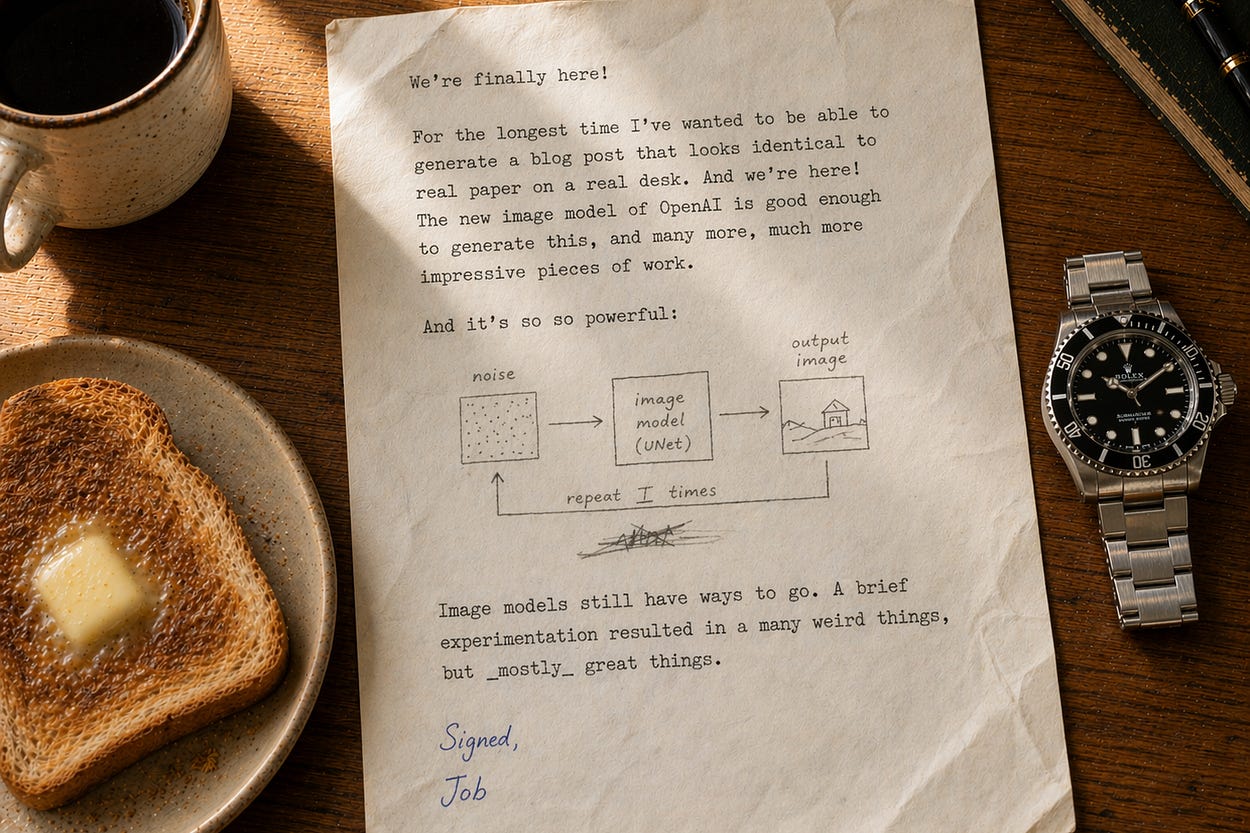 We're finally here!
For the longest time I've wanted to be able to
generate a blog post that looks identical to
real paper on a real desk. And we're here!
The new image model of OpenAI is good enough
to generate this, and many more, much more
impressive pieces of work.
And it's so so powerful:
noise
image
model
(UNet)
output
image
repeat T times
Image models still have ways to go. A brief
experimentation resulted in a many weird things,
but _mostly_ great things.
Signed,
Job
ROLEX
SUBMARINER
50
10
40
20
30